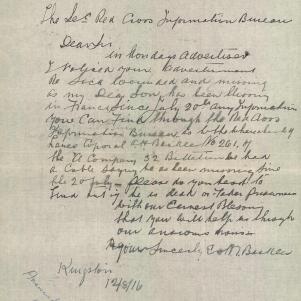 The Sec Red Cross Information Bureau
Dear Sir
in Mondays Advertiser
I noticed your Advertisement
Re Local wounded and missing
as my Dear Son has been Missing
in France since July 20th any Information
you Can Find through the Red Cross
Information Bureau as to the whereabouts of
Lance Corporal A H Barker No 261 of
the A Company 32 Battalion he had
a Cable Saying he as been missing since
the 20 July Please do your best to
Find out if he is dead or Taken Prisoner
with our Ernest Blessing
that you will help us through
our anxious hours
Yours Sincerely E & M Barker
Kingston
12/8/16